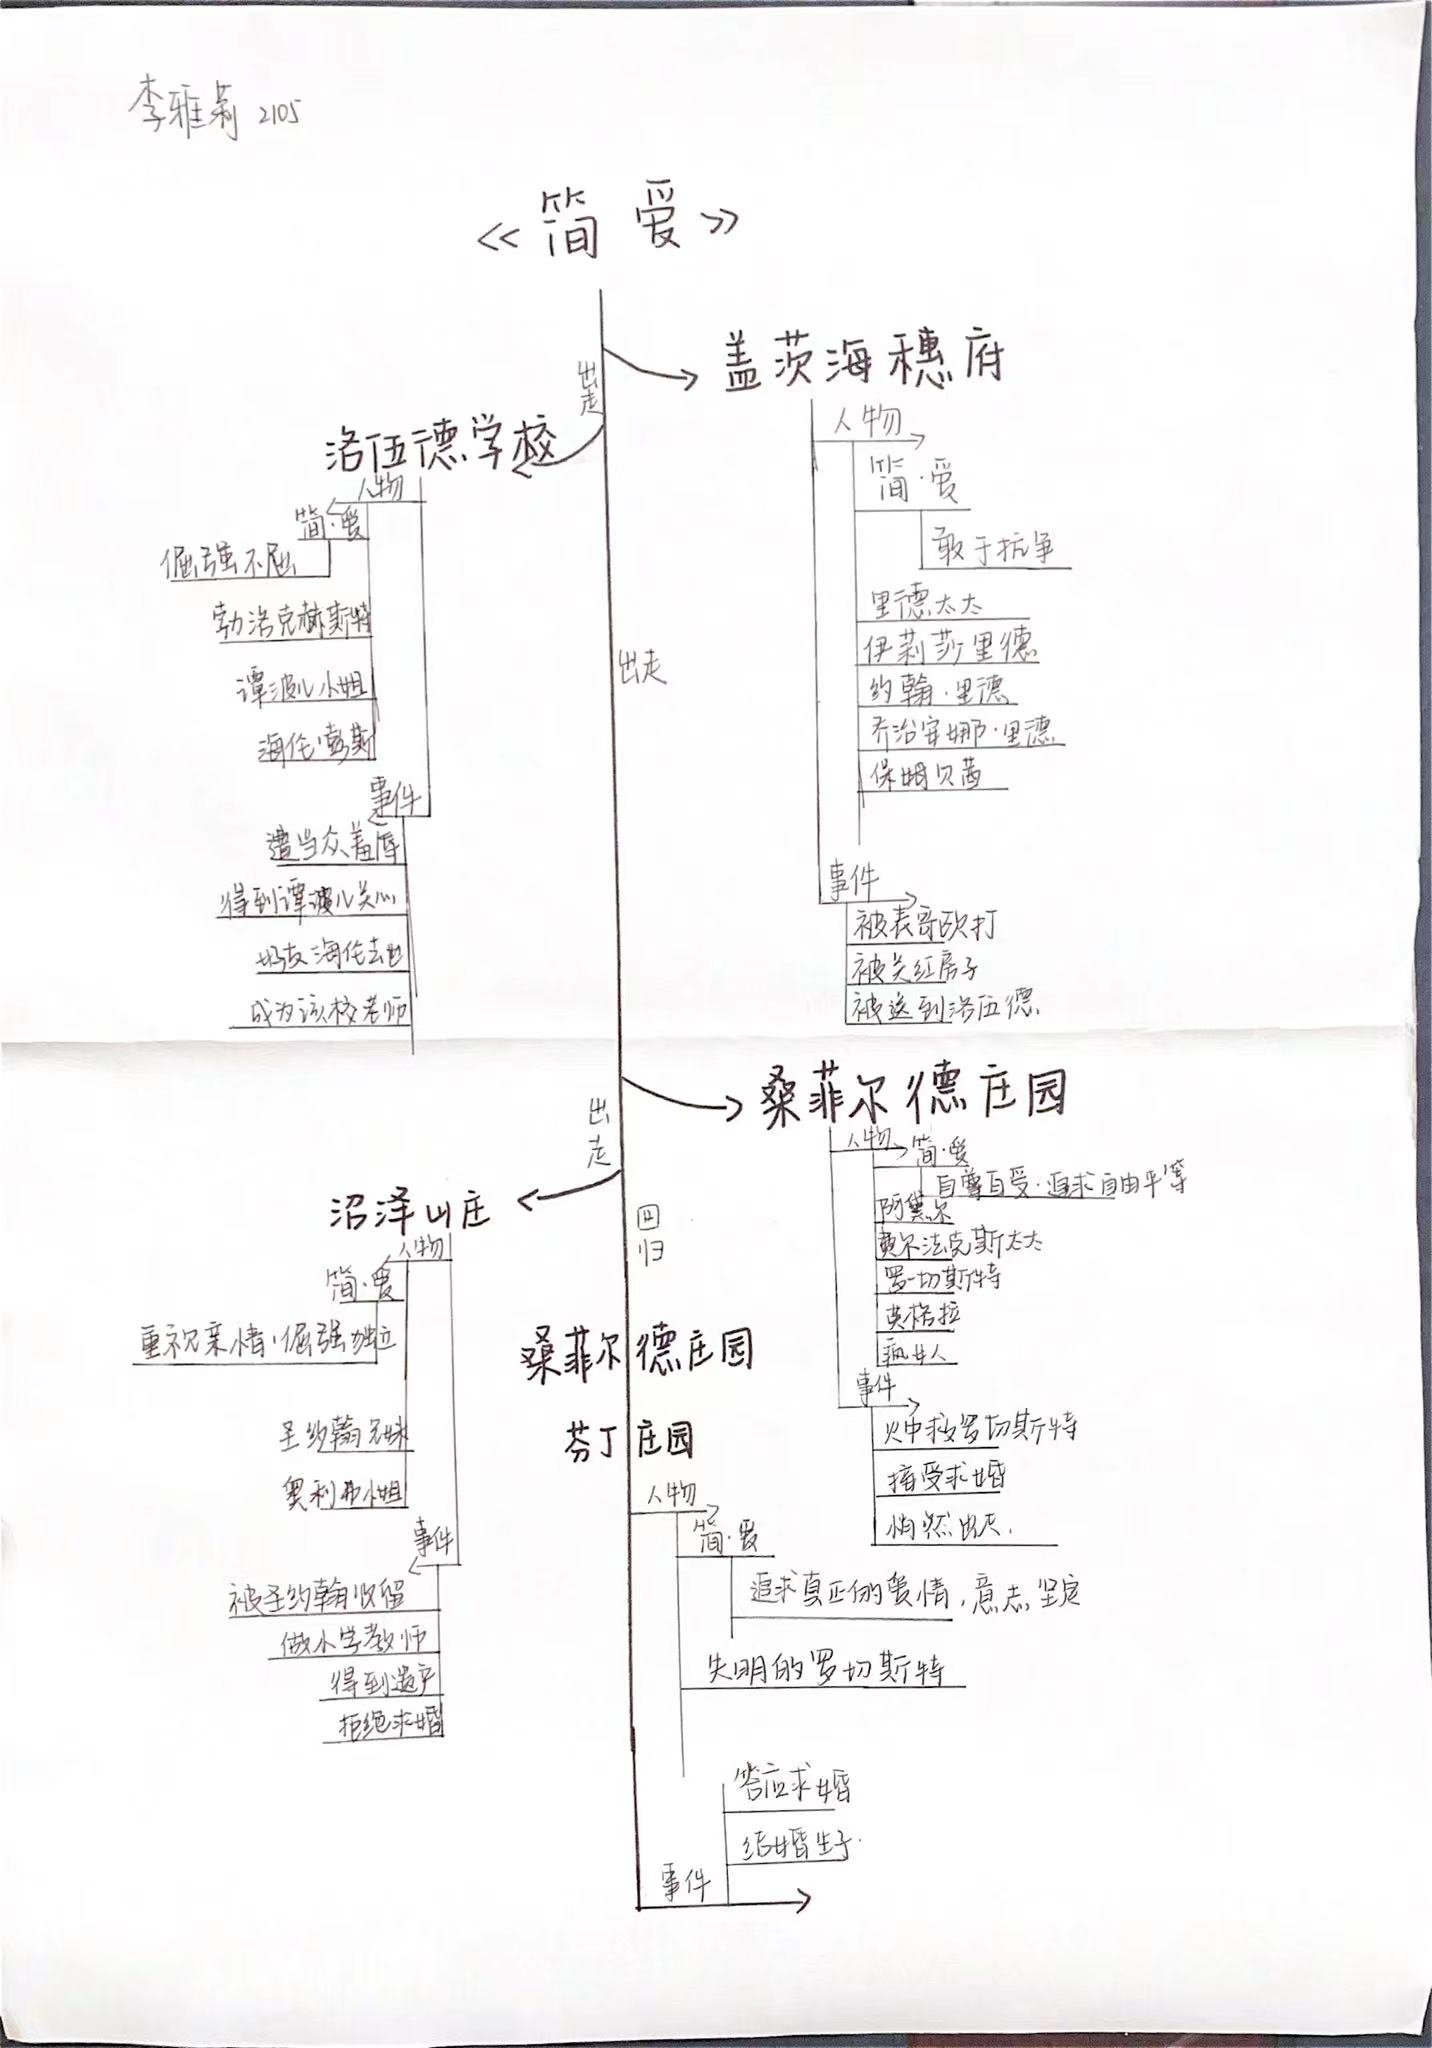 李雅莉 2105
《简 爱》
出走
盖茨海穗府
人物
简·爱
敢于抗争
里德太太
伊莉莎里德
约翰·里德
乔治安娜·里德
保姆贝茜
事件
被表哥殴打
被关红房子
被送到洛伍德
洛伍德学校
人物
简·爱
倔强不屈
勃洛克赫斯特
谭波儿小姐
海伦·彭斯
事件
遭当众羞辱
得到谭波儿关心
好友海伦去世
成为该校老师
出走
桑菲尔德庄园
人物
简·爱
自尊自爱·追求自由平等
阿黛尔
费尔法克斯太太
罗切斯特
英格拉
疯女人
事件
火中救罗切斯特
接受求婚
悄然出走.
出走
沼泽山庄
人物
简·爱
重视亲情·倔强独立
圣约翰兄妹
奥利弗小姐
事件
被圣约翰收留
做小学教师
得到遗产
拒绝求婚
回归
桑菲尔德庄园
芬丁庄园
人物
简·爱
追求真正的爱情,意志坚定
失明的罗切斯特
答应求婚
结婚生子.
事件